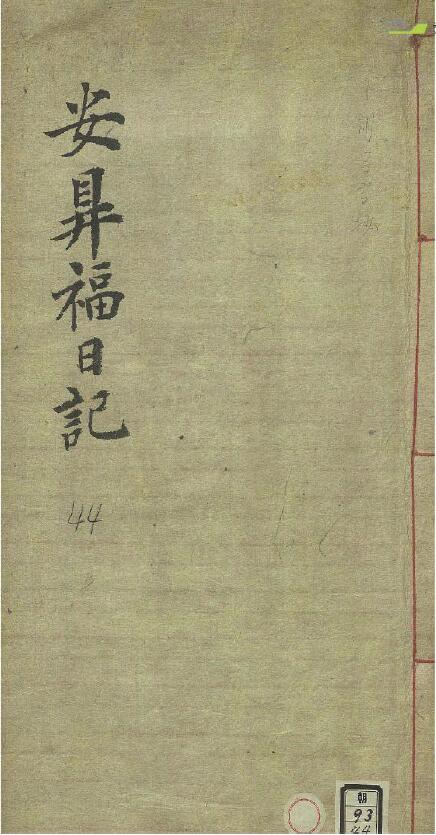 安昇福日記
44
朝
93
44